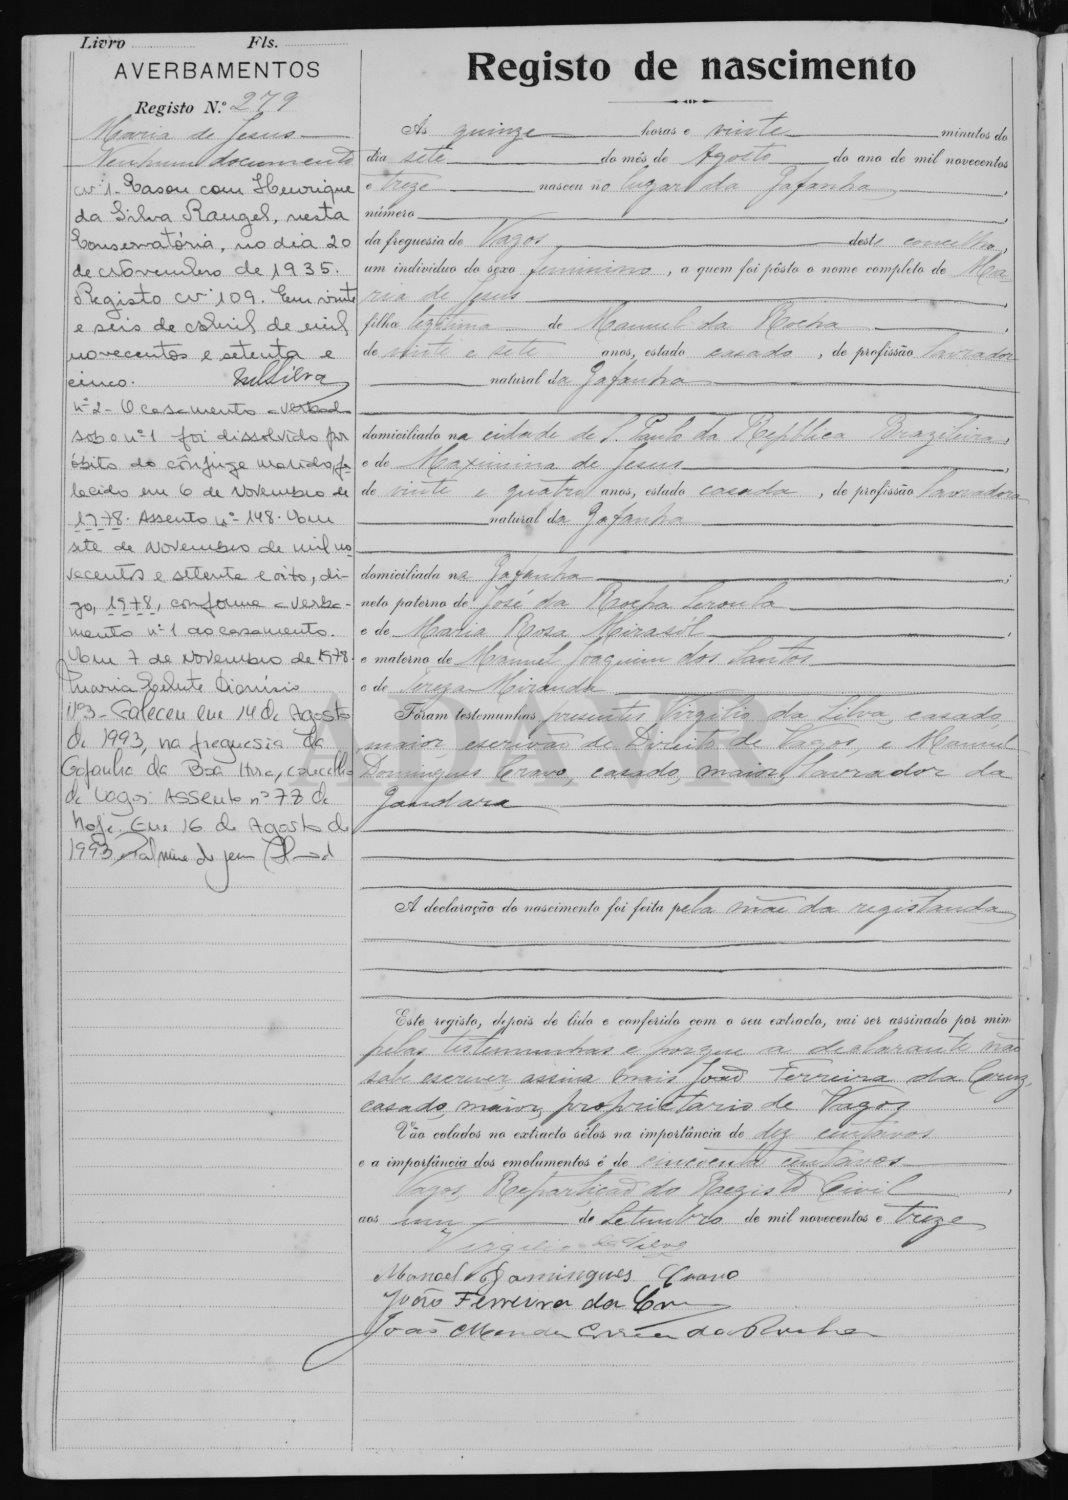 Livro Fls.
AVERBAMENTOS
Registo N.º 279
Maria de Jesus
Nenhum documento
Nº 1 - Casou com Henrique
da Silva Rangel, nesta
Conservatória, no dia 20
de Novembro de 1935.
Registo nº 109. Em vinte
e seis de Abril de mil
novecentos e setenta e
cinco.
nº 2 - O casamento averbado
sob o nº 1 foi dissolvido por
óbito do cônjuge marido, fa-
lecido em 6 de Novembro de
1978. Assento nº 148. Em
sete de Novembro de mil no
vecentos e setenta e oito, di-
go, 1978, conforme averba-
mento nº 1 ao casamento.
Em 7 de Novembro de 1978.
Maria Dionísio
Nº 3 - Faleceu em 14 de Agosto
de 1993, na freguesia da
Gafanha da Boa Hora, concelho
de Vagos. Assento nº 78 de
hoje. Em 16 de Agosto de
1993
Registo de nascimento
Ás quinze horas e vinte minutos do
dia sete do mês de Agosto do ano de mil novecentos
e treze nasceu no lugar da Gafanha,
número
da freguesia de Vagos, deste concelho,
um individuo do sexo feminino, a quem foi pôsto o nome completo de Ma-
ria de Jesus
filha legitima de Manuel da Rocha
de vinte e sete anos, estado casado, de profissão lavrador
natural da Gafanha
domiciliado na cidade de S. Paulo da Repblica Brazileira,
e de Maximina de Jesus
de vinte e quatro anos, estado casada, de profissão lavradora
natural da Gafanha
domiciliada na Gafanha
neto paterno de José da Rocha
e de Maria Rosa Mirasól
e materno de Manuel Joaquim dos Santos
e de Tereza Miranda
Foram testemunhas presentes Virgilio da Silva, casado,
maior, escrivão de Direito de Vagos, e Manuel
Domingues Cravo, casado, maior, lavrador da
Gandara
A declaração do nascimento foi feita pela mãe da registanda
Este registo, depois de lido e conferido com o seu extracto, vai ser assinado por mim
pelas testemunhas e porque a declarante não
sabe escrever, assina mais João Ferreira da Cruz,
casado, maior, proprietario de Vagos
Vão colados no extracto sêlos na importância de dez centavos
e a importância dos emolumentos é de cincoenta centavos
Vagos, Repartição do Registo Civil
aos um de Setembro de mil novecentos e treze
Virgilio da Silva
Manoel Domingues Cravo
João Ferreira da Cruz
João Mendes Correa da Rocha
ADAVR